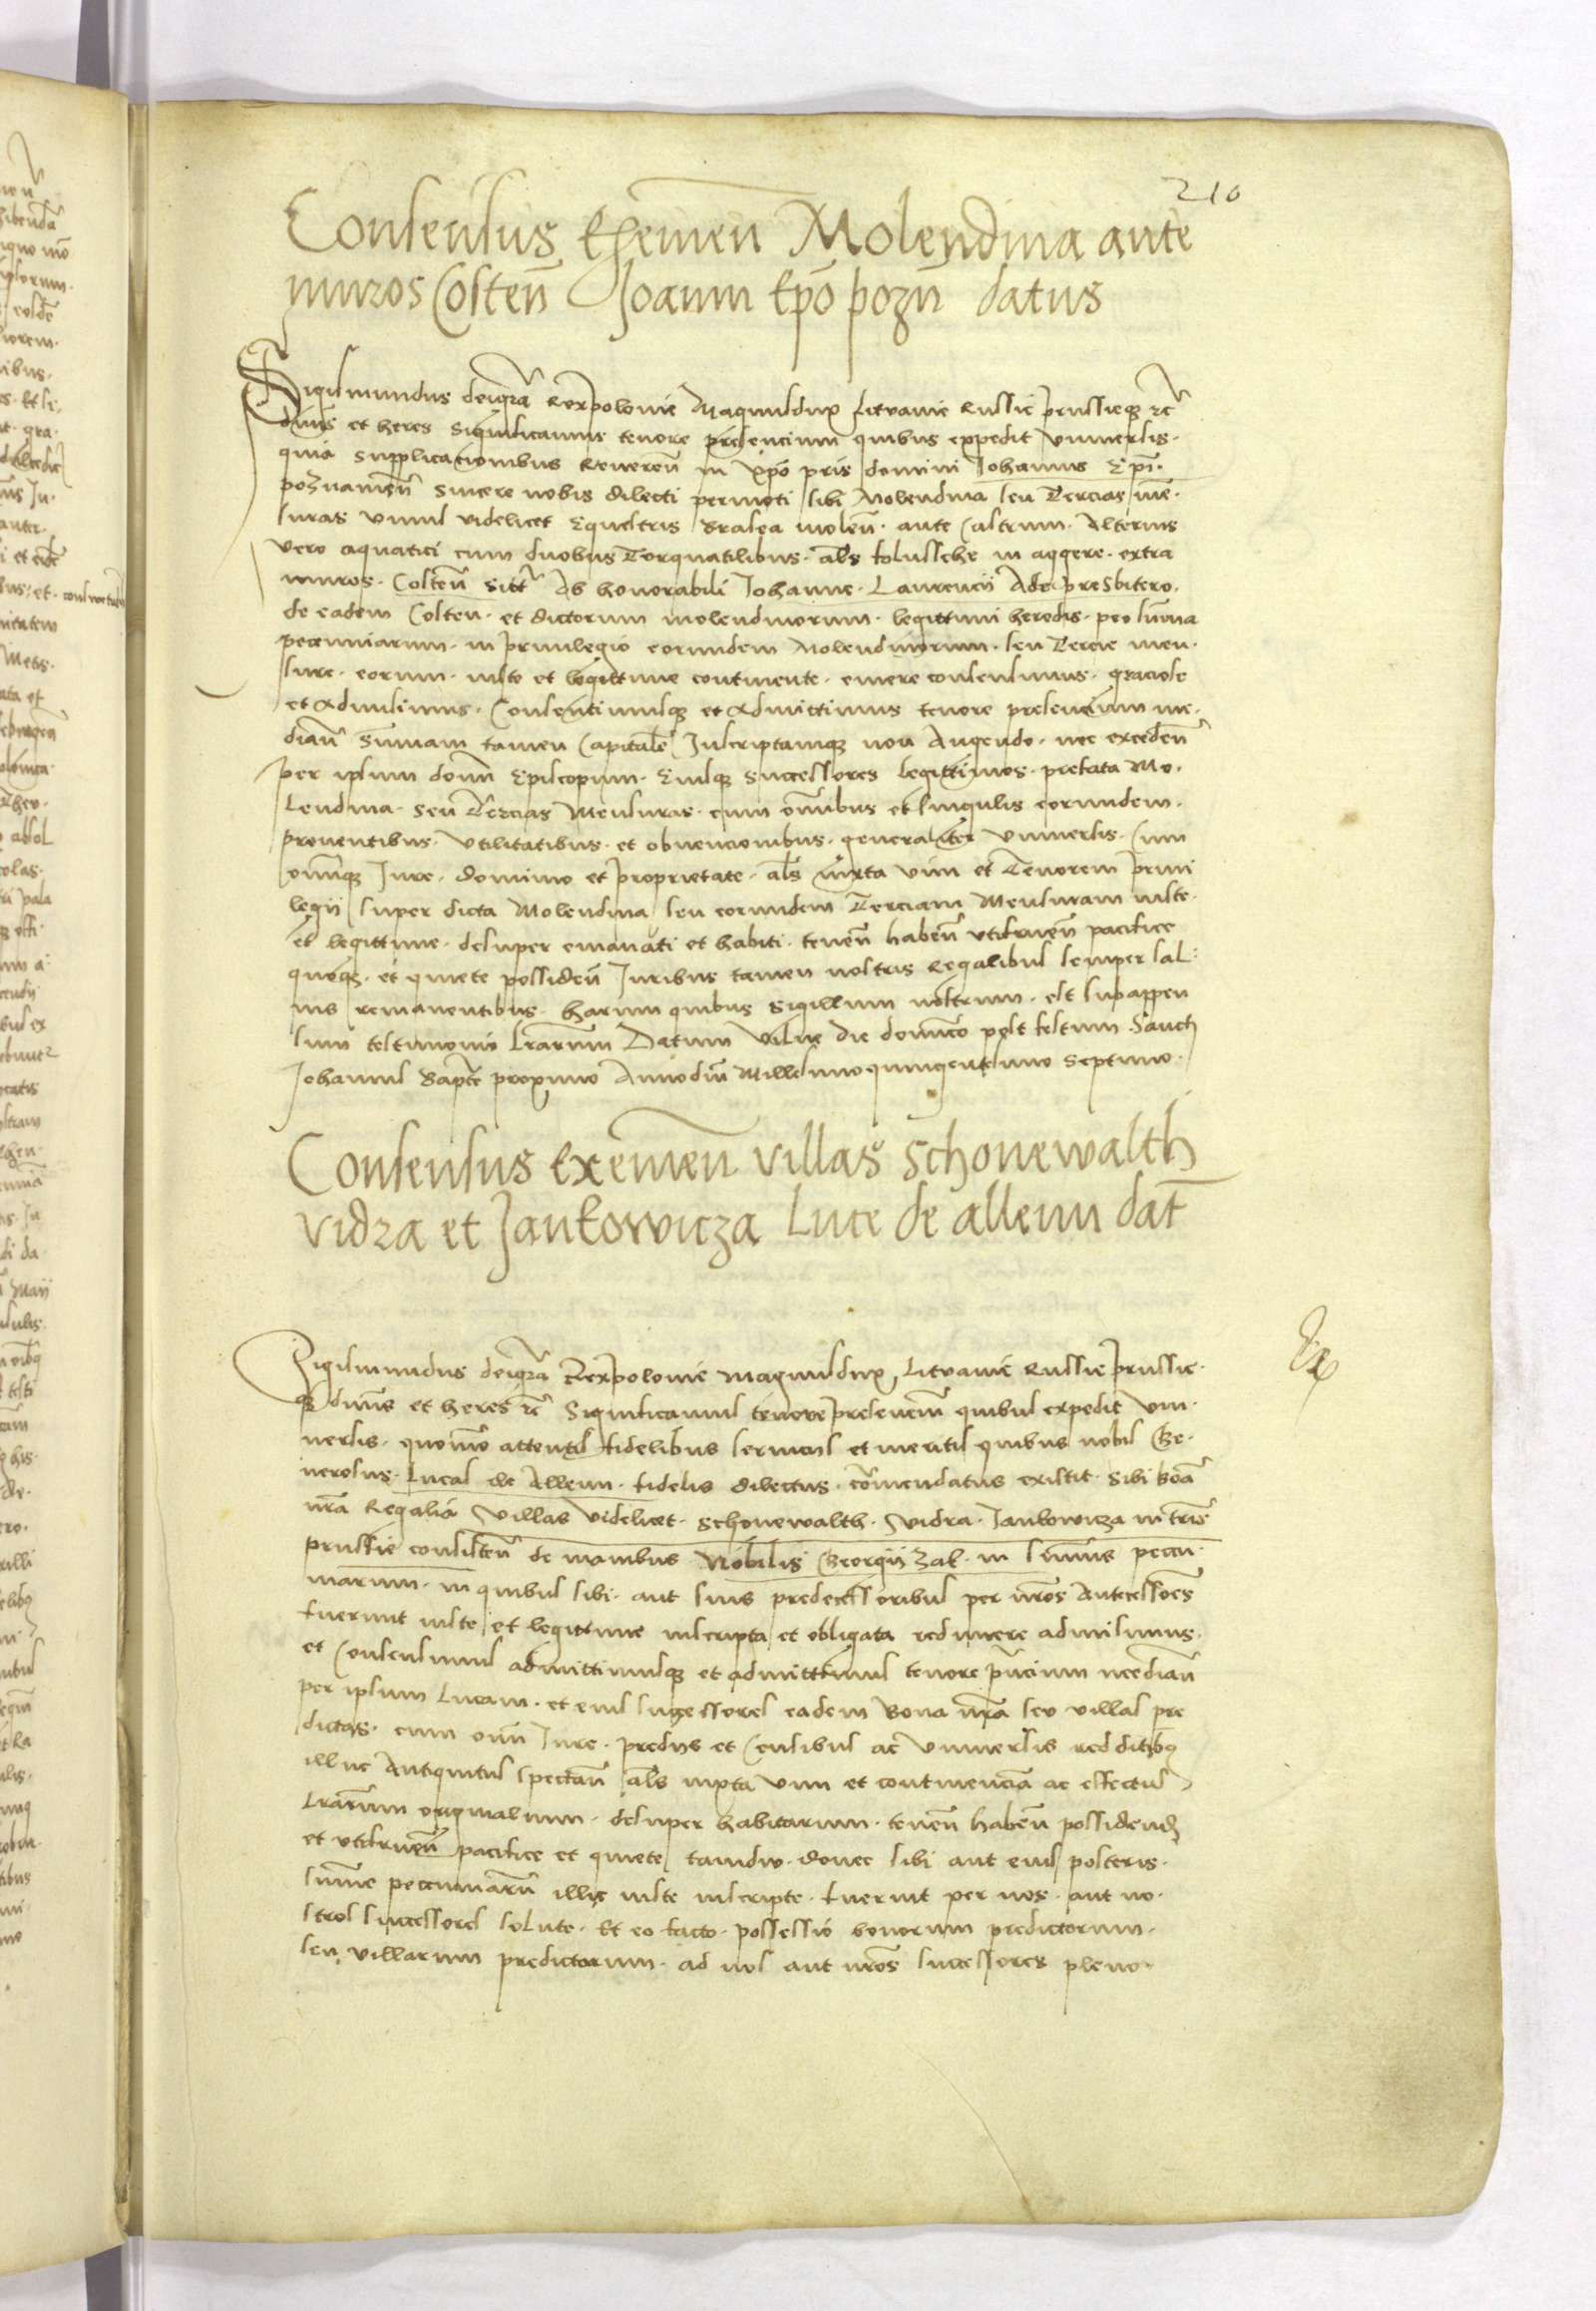 210
Consensus Exemen̄ Molendina ante
muros Costen̄ Joanni Ep̄o pozn̄ datus
Sigismundus dei gr̄a Rex polonie Magnus dux Litvanie Russie prussieqꝫ ꝛc̄
dn̄us et heres Significamus tenore presencium quibus expedit vniuersis.
quia supplicacionibus Reueren̄ in xp̄o pris domini Johannis Ep̄i.
poznanien̄ sincere nobis dilecti permoti sibi Molendina seu Tercias men̄
suras vnius videlicet Equestris molen̄. ante Castrum. Alterius
vero aquatici cum duobus als kolussche in aggere. extra
muros. Costen̄ sitt̄ Ab honorabili Johanne. Laurencij Ade presbitero.
de eadem Costen. et dictorum molendinorum. legittimi heredis. pro sum̄a
pecuniarum. in priuilegio eorundem Molendinorum. seu Tercie men
sure. eorum. iuste et legittime continente. emere consensimus. graciose
et Admisimus. Consentimusqꝫ et Admittimus tenore presencium me
dian̄ Sum̄am tamen Capitalē Inscriptamqꝫ non Augendo. nec exceden̄
per ipsum don̄n Episcopum. Eiusqꝫ successores legittimos. prefata Mo
Lendina. seu Tercias Mensuras. cum om̄ibus et singulis eorundem.
prouentibus. vtilitatibus. et obuencionibus. generaliter vniuersis. Cum
omniqꝫ Jure. dominio et proprietate. als iuxta vim et Tenorem priui
legij super dicta Molendina seu eorundem Terciam Mensuram iuste.
et legittime. desuper emanati et habiti. tenen̄ haben̄ vtifruen̄ pacifice
queqꝫ. et quiete possiden̄ Juribus tamen nostris Regalibus semper sal
uis remanentibus. harum quibus Sigillum nostrum. est subappen
sum testimonio lr̄arum Datum vilne die dominīco post festum Sancti
Johannis Bapte proximo Anno dn̄i Millesimo quingentesimo Septimo.
Consensus Exemen̄ villas Schonewalth
vidra et Jankowicza Luce de allenn dat̄
Sigismundus dei gr̄a Rex polonie Magnus dux Litvanie Russie prussie
qꝫ dn̄us et heres ꝛc̄ Significamus tenore presencium̄ quibus expedit vni
uersis. quomō attentis fidelibus seruicijs et meritis quibus nobis Ge
nerosus. Lucas de Allenn. fidelis dilectus. com̄endatus existit. Sibi boā
nr̄a Regalia villas videlicet. Schonewalth. vidra. Jankowicza in tris̄
prussie consisten̄ de manibus Nobilis Georgij Zak. in summis pecu
niarum. in quibus sibi. aut suis predecessoribus per nr̄os Antecessores̄
fuerunt iuste et legittime inscripta et obligata redimere admisimus.
et Consensimus admittimusqꝫ et admittimus tenore pn̄cium mediān
per ipsum Lucam. et eius sucessores eadem Bona nr̄a seu villas pre
dictas. cum omn̄ Jure. predijs et Censibus ac vniuersis redditibꝫ
illuc Antiquitus spectan̄ als iuxta vim et continenciā ac effectus
Lr̄arum originalium. desuper habitarum. tenen̄ haben̄ possidend
et vtifruen̄ pacifice et quiete tamdiu. donec sibi aut eius posteris.
summe pecuniarū illic iuste inscripte. fuerint per nos. aut no
stros successores solute. Et eo facto. possessio bonorum predictorum.
seu villarum predictarum. ad nos aut nr̄os successores pleno.